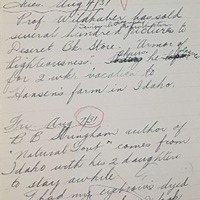 Tues. Aug 4/31
Prof. Widtsoe has sold
several hundred pictures to
Deseret Bk. Store. "Armor of
Righteousness". he
for 2 wk. vacation to
Hansen's farm in Idaho.
Fri. Aug 7/31
B B Stringham author of
"Natural " comes from
Idaho with his 2 daughters
to stay awhile
I had my eyebrows dyed